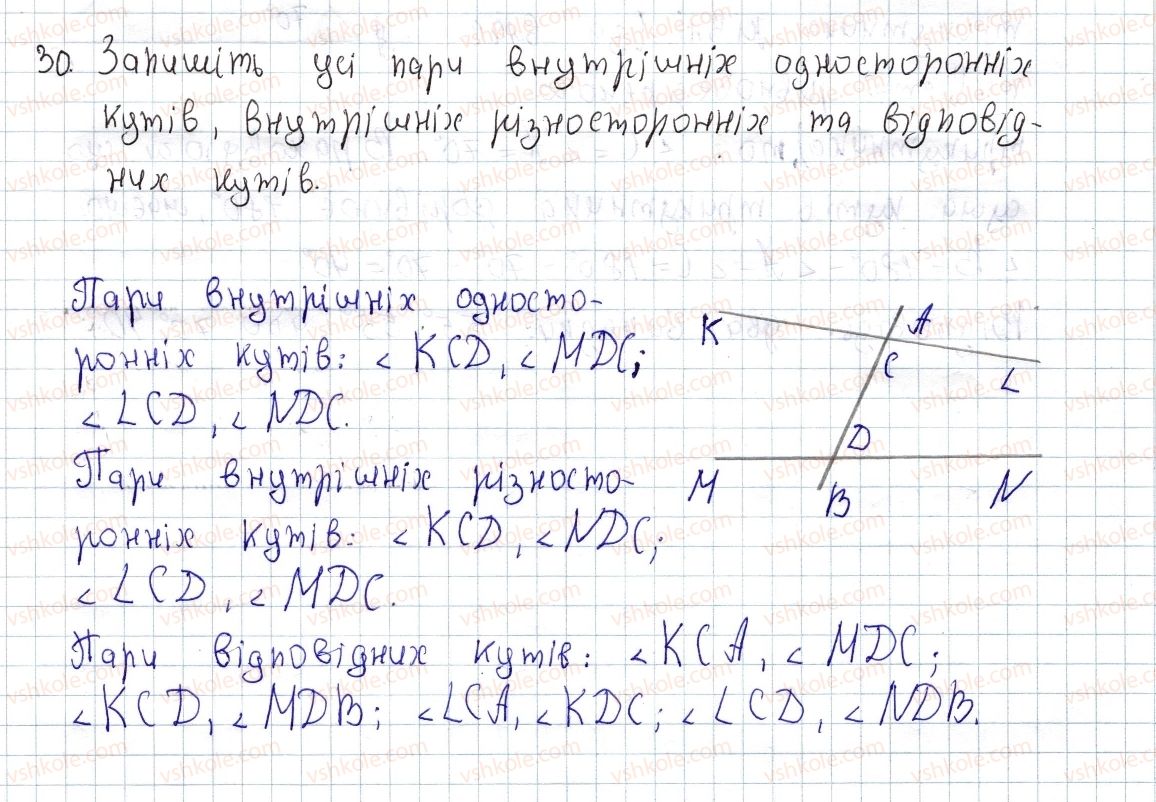 30. Запишіть усі пари внутрішніх односторонніх
кутів, внутрішніх різносторонніх та відповід-
них кутів.
Пари внутрішніх односто-
ронніх кутів: ∠KCD, ∠MDC;
∠LCD, ∠NDC.
Пари внутрішніх різносто-
ронніх кутів: ∠KCD, ∠NDC;
∠LCD, ∠MDC.
Пари відповідних кутів: ∠KCA, ∠MDC;
∠KCD, ∠MDB; ∠LCA, ∠KDC; ∠LCD, ∠NDB.
K A
C L
D
M B N
vshkole.com